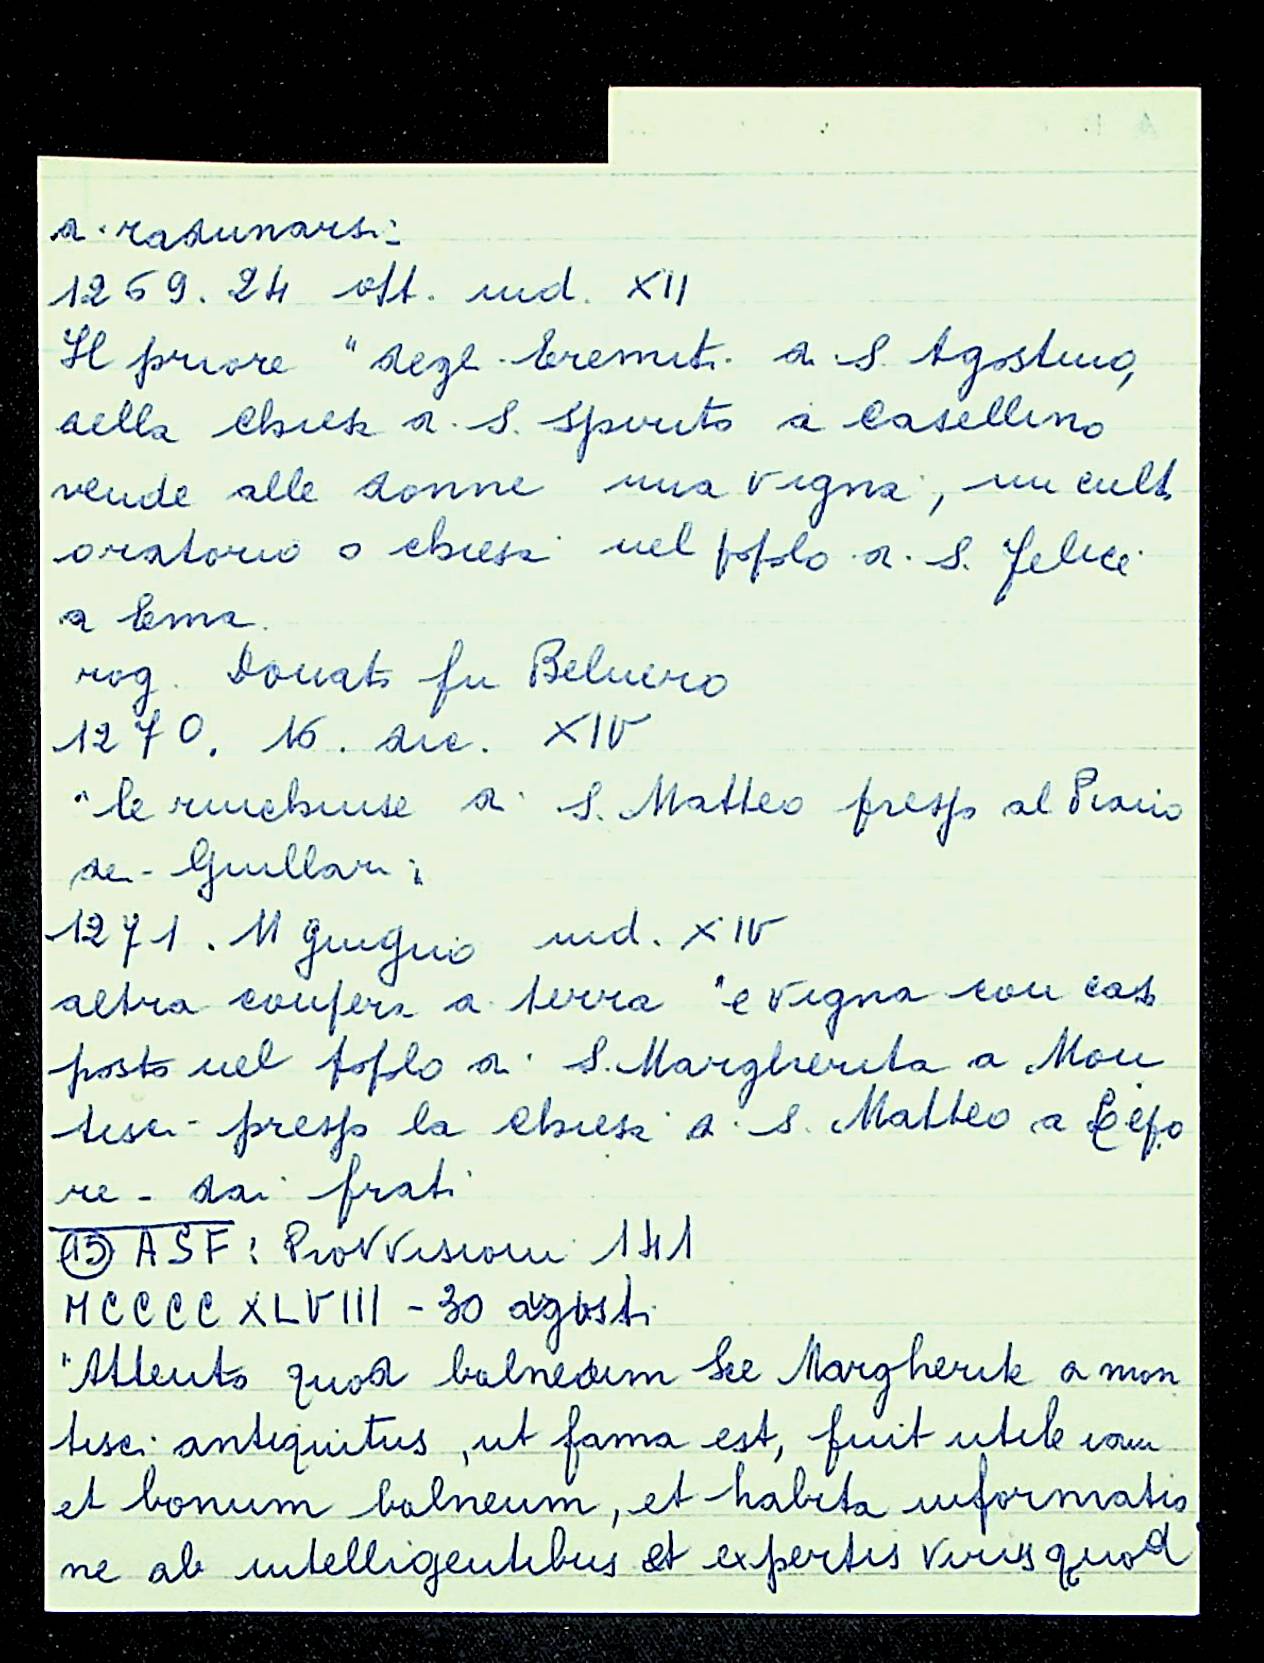 di radunarsi:
1269. 24 ott. ind. XII
Il priore "degli Eremiti di S. Agostino,
della Chiesa di S. Spirito a Casellino
vende alle donne una vigna, un cult.
oratorio o chiesa nel popolo di S. Felice
a Ema.
rog. Donato fu Belniero
1270. 16. dic. XIV
"le rinchiuse di S. Matteo presso al Piano
dei Giullari;
1271. 11 giugno ind. XIV
altra compera di terra "e vigna con casa
posto nel popolo di S. Margherita a Mon
tisci presso la Chiesa di S. Matteo a Lepo
re - dai frati
(15) ASF: Provvisioni 141
MCCCCXLVIII - 30 agosti
"Attento quod balneum See Margherite a mon
tisci antiquitus, ut fama est, fuit utile
et bonum balneum, et habita informatio
ne ab intelligentibus et expertis viris quod